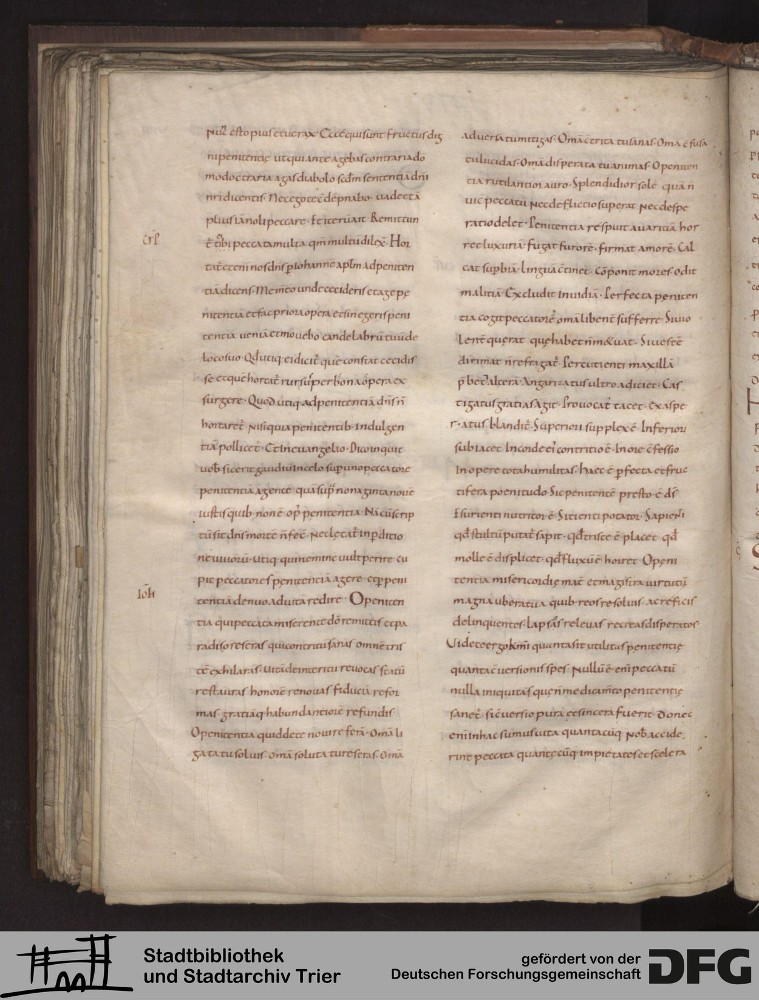 esto pius et uerax. Ecce qui sunt fructus dig
ni penitentię ut qui ante agebas contraria do
modo ctraria agas diabolo scdm sententiā dñi
nri dicentis. Nec ego te cdepnabo. uade et ā
plius iā noli peccare. Et iterū ait. Remittun
t̄ tibi peccata multa qm̄ multū dilex̄. Hor
tat̄ et eni nos dns p iohanne aplm ad peniten
tiā dicens. Memento unde cecideris et age pe
nitentia et fac priora opera et si n egeris peni
tentia ueniā et mouebo candelabrū tuū de
loco suo. Qd utiq; ei dicit̄ que constat cecidis
se et que hortat̄ rursū per bona opera ex
surgere. Quod utiq; ad penitentiā dñs ñ
hortaret̄ nisi quia penitentib. indulgen
tiā pollicet̄. Et in euangelio. Dico inquit
uob. sic erit gaudiū in celo sup uno peccatore
penitentiā agente quā sup nonaginta noue
iustis quib. non ē op penitentia. Nā cū scrip
tū sit dns mortē ñ fec̄. Nec letat̄ in pditio
ne uiuorū. utiq; qui neminē uult perire cu
pit peccatores penitentiā agere et p peni
tentiā denuo ad uita redire. O peniten
tia qui peccata miserente dō remittis et pa
radiso reseras qui contritū sanas omne tris
tē exhilaras. uitā de interitu reuocas statū
restauras honorē renouas fiduciā refor
mas gratiāq; habundantiorē refundis
O penitentia quid de te noui referā. Omā li
gata tu soluis. omā soluta tu reseras. Omā
aduersa tu mitigas. Omā ctrita tu sanas. Omā cfusa
tu lucidas. Omā disperata tu animas. O peniten
tia rutilantior auro. Splendidior sole quā ñ
uic peccatū nec defectio superat nec despe
ratio delet. Penitentia respuit auaritiā hor
ret luxuriā fugat furorē. firmat amorē. Cal
cat supbiā. linguā ctinet. Coponit mores. odit
malitiā. Excludit inuidiā. Perfecta peniten
tia cogit peccatorē omā libent sufferre. Si uio
lent querat que habet
dirimat ñ refragat̄. Percutienti maxillā
p bet alterā. Angariatus ultro adiciet. Cas
tigatus gratias agit. Prouocat̄ tacet. Exaspe
ratus blandit̄. Superiori supplex ē. Inferiori
subiacet. In corde ei contritio ē. In ore cfessio
In opere tota humilitas. haec ē pfecta et fruc
tifera poenitudo. Sic penitentē presto ē ds
Esurienti nutritor ē. Sitienti potator. Sapienti
qd stultū putat̄ sapit. qd triste ē placet. qd
molle ē displicet. qd fluxū ē horret. O peni
tentia misericordię mat̄ et magistra uirtutū
magna ubera tua quib. reos resoluis. ac reficis
delinquentes. lapsos releuas recreas disperatos
Videte ergo kmi quanta sit utilitas penitentię
quanta cuersionis spes. Nullū ē eni peccatū
nulla iniquitas que ñ medicamto penitentię
sanet̄. si cuersio pura et sincera fuerit. Donec
eni in hac sumus uita quantacūq; nob. accide
rint peccata quantęcūq; impietates et scelera
IOH
Stadtbibliothek
und Stadtarchiv Trier
gefördert von der
Deutschen Forschungsgemeinschaft
DFG